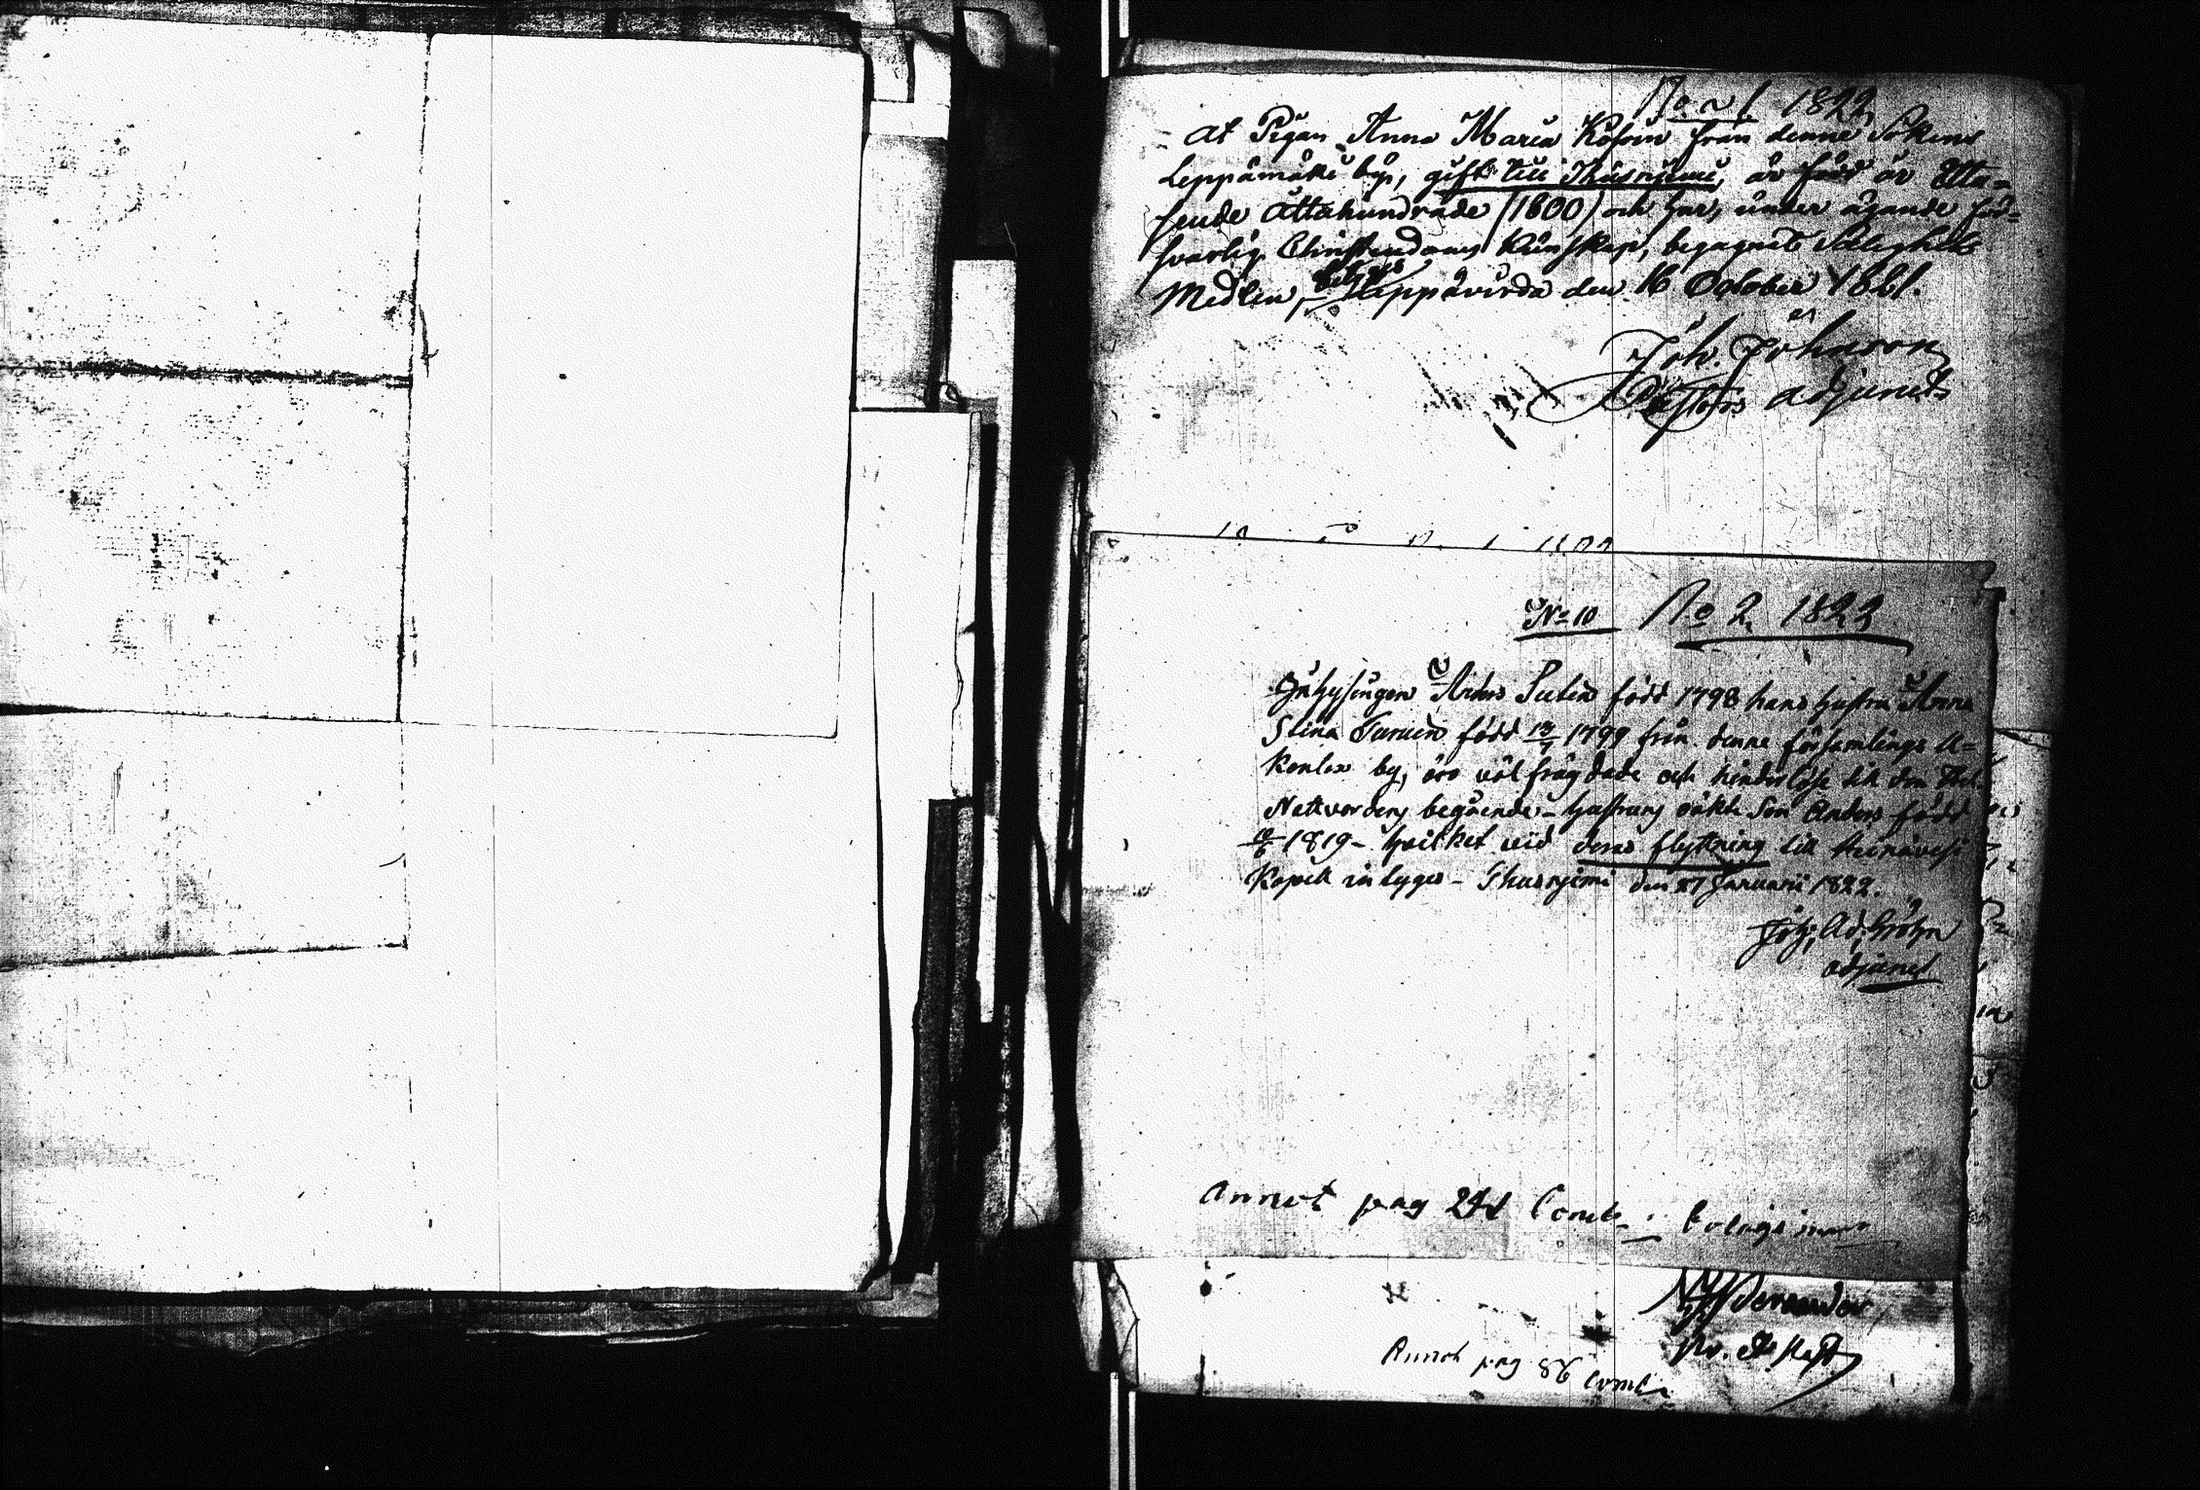 No 1 1822
At Pigan Anna Maria Kosoin från denne Sokens
Leppämäki by, gift till Thusniemi, är född år Etta-
sende Åttahundrade (1800) och har, under ägande för-
svarlig Christendoms Kunskap, begagnat Salighets
Medlen, betygas Leppävirda den 16 October 1821.
Joh. Johnson
Pastors adjunct
No 10 No 2 1822
Inhysingen Anders Lulin född 1798 hans hustru Anna
Stina Turuin född 13/7 1799 från denne församlings A-
konlax by, äro väl frägdade och hinderlöse till den
Nattvardens begående - hustruns oäkta Son Anders född
1819 - hvilket vid deras flyttning till Heinävesi
Kapell intygas - Thusniemi den 27 Januarii 1822.
Joh. Ad. Gröhn
adjunct
Annot pag 241 Comb
Annot pag 86 Comb